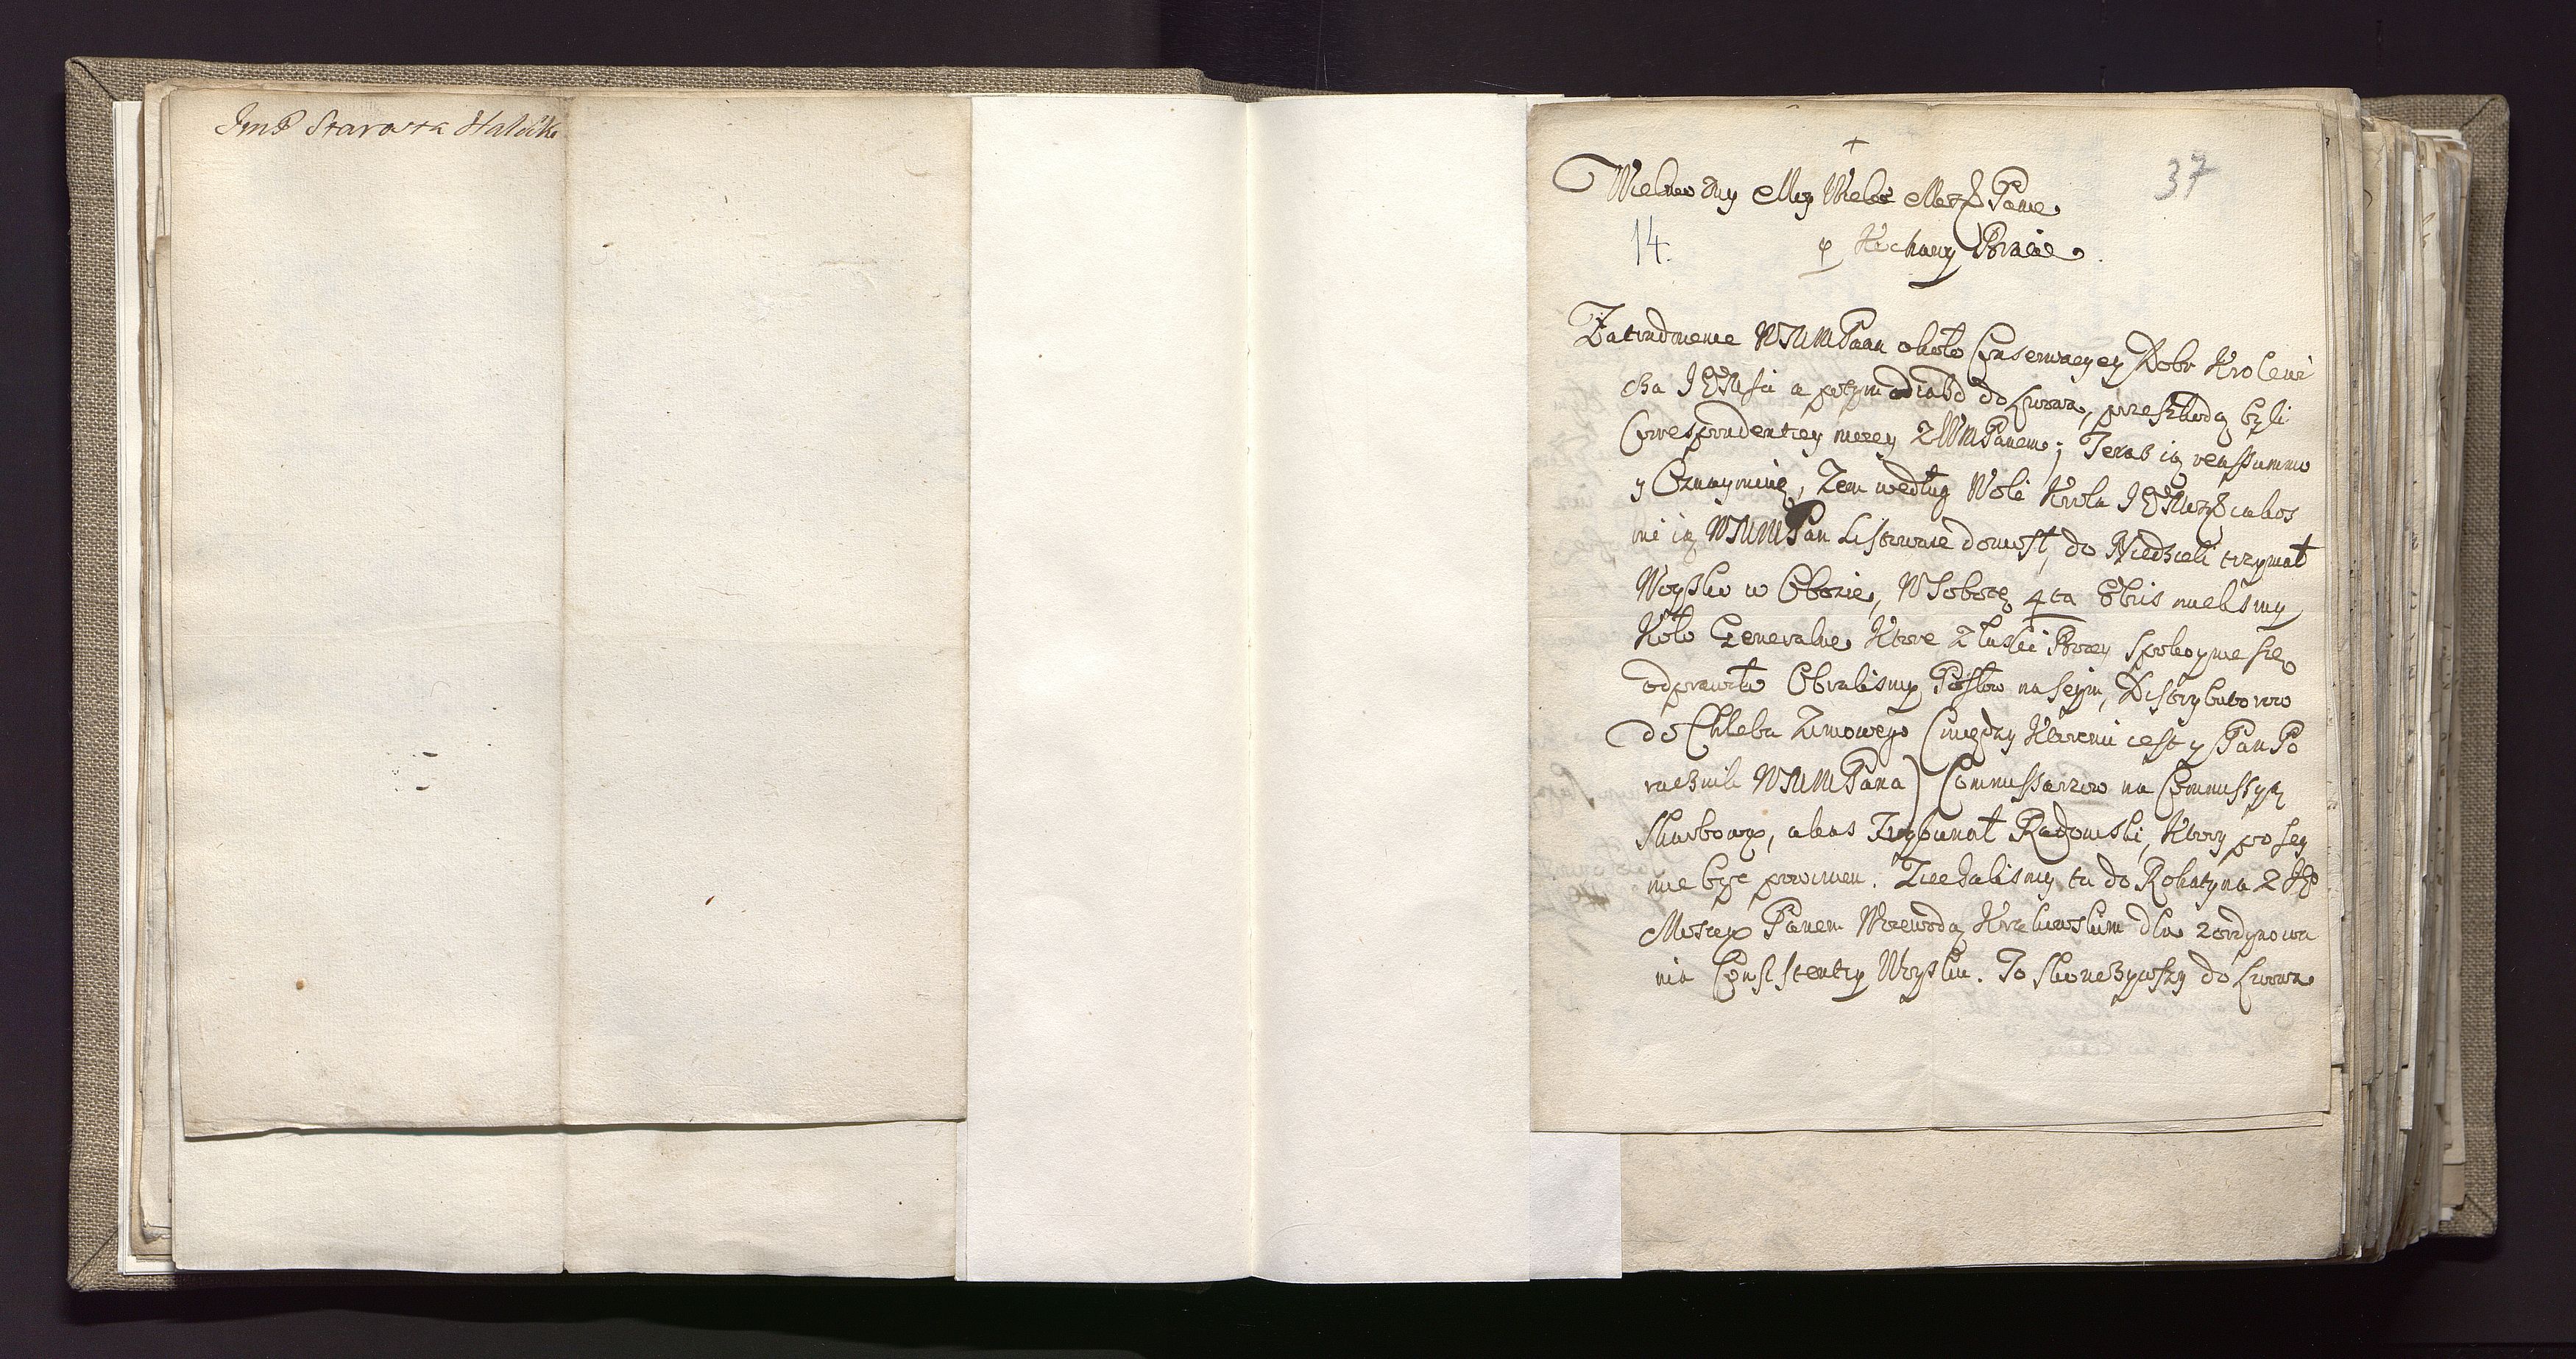 JmP Starosta Halicki
37
+
Wielmozny Mcy Wielce Mosci Panie
14. y Kochany Bracie
Zatrudnienie WMMPana około Conserwacyey Dobr Krolewi
cza JEMsci a potym odiazd do Lwowa, przeszkodą byli
Correspondentiey moiey z WMPanem; Teraz ią reassummo
y Oznaymuię, Zem według Woli Krola JEMci iakos
mi ią WMMPan Listownie doniosł, do Niedzieli trzymał
Woysko w Obozie, W Sobotę 4ta 8bris mielismy
Koło Generalne Ktore z łaski Bozey spokoynie się
odprawiło Obralismy Posłow na seym, Distrybutorow
do Chleba Zimowego (między Ktoremi iest y Pan Po
rucznik WMMPana) Commissarzow na Commissyą
Skarbową, alias Trybunał Radomski, Ktory po sey
mie byc powinien. Ziechalismy tu do Rohatyna z Je
Moscią Panem Woiewodą Krakowskim dla zordynowa
nia Consistentiy Woysku. To skonczywszy do Lwowa